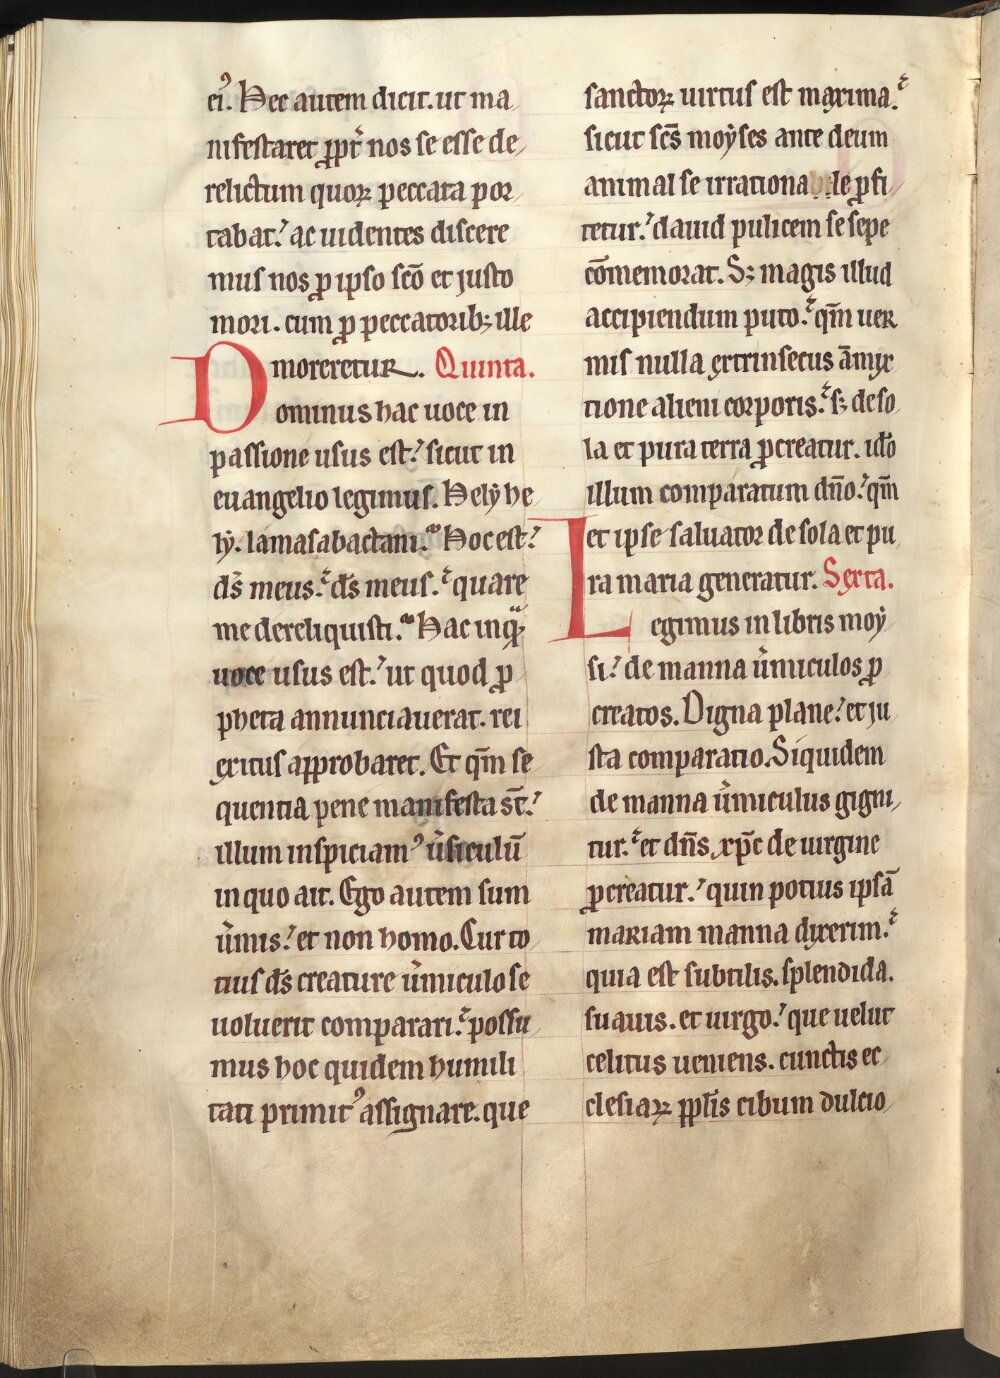 ei᾽. Hec autem dicit. ut ma
nifestaret ꝓpt̾ nos se esse de
relictum quoꝝ peccata por
tabat. ac uidentes discere
mus nos ꝓ ipso sc̄o et justo
mori. cum ꝓ peccatorib; ille
moreretur. Quinta.
Dominus hac uoce in
passione usus est. sicut in
euangelio legimus. Hely he
ly. lamasabactani. Hoc est.
ds̄ meus. ds̄ meus. quare
me dereliquisti. Hac inqᷓ
uoce usus est. ut quod ꝓ
pheta annunciauerat. rei
exitus approbaret. Et qm̄ se
quentia pene manifesta st̄.
illum inspiciam᾽ u̾siculū
in quo ait. Ego autem sum
u̾mis. et non homo. Cur to
tius ds̄ creature u̾miculo se
uoluerit comparari. possu
mus hoc quidem humili
tati primit᾽ assignare. que
sanctoꝝ uirtus est maxima.
sicut sc̄s moẏses ante deum
animal se irrationabile ꝓfi
tetur. dauid pulicem se sepe
cōmemorat. S; magis illud
accipiendum puto. qm̄ uer
mis nulla extrinsecus āmix
tione alieni corporis. s; de so
la et pura terra ꝓcreatur. idō
illum comparatum dn̄o. qm̄
et ipse saluator de sola et pu
ra maria generatur. Sexta.
Legimus in libris moẏ
si. de manna u̾miculos ꝓ
creatos. Digna plane. et ju
sta comparatio. Siquidem
de manna u̾miculus gigni
tur. et dn̄s xp̄c de uirgine
ꝓcreatur. quin potius ipsā
mariam manna dixerim.
quia est subtilis. splendida.
suauis. et uirgo. que uelut
celitus ueniens. cunctis ec
clesiaꝝ ppl̄is cibum dulcio